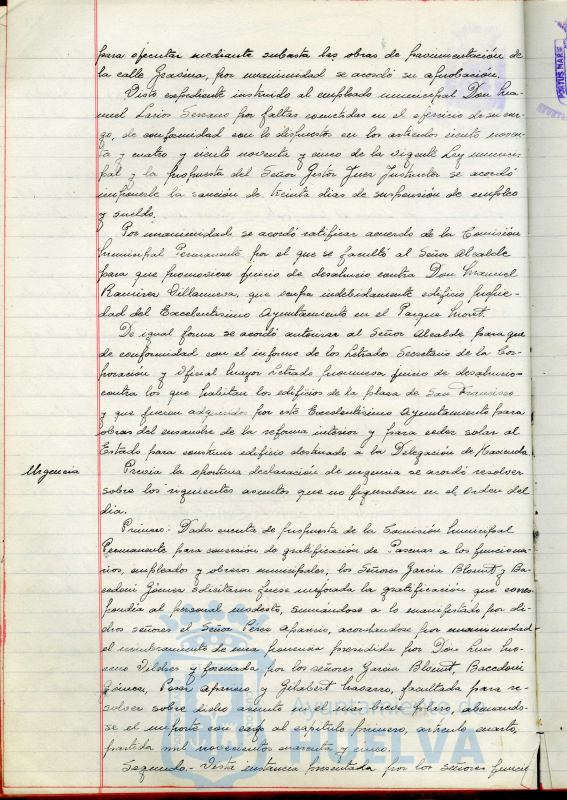 para ejecutar mediante subasta las obras de pavimentación de
la calle Gravina, por unanimidad se acordó su aprobación.
Visto expediente instruido al empleado municipal Don Ma-
nuel Larios Serrano por faltas cometidas en el ejercicio de su car-
go, de conformidad con lo dispuesto en los artículos ciento noven-
ta y cuatro y ciento noventa y cinco de la vigente Ley munici-
pal y la propuesta del Señor Gestor Juez Instructor se acordó
imponerle la sanción de treinta dias de suspensión de empleo
y sueldo.
Por unanimidad se acordó ratificar acuerdo de la Comisión
Municipal Permanente por el que se facultó al Señor Alcalde
para que promoviese juicio de desahucio contra Don Manuel
Ramirez Villanueva, que ocupa indebidamente edificio propie-
dad del Excelentísimo Ayuntamiento en el Parque Moret.
De igual forma se acordó autorizar al Señor Alcalde para que
de conformidad con el informe de los Letrados Secretario de la Cor-
poración y Oficial Mayor Letrado promueva juicio de desahucio
contra los que habitan los edificios de la plaza de San Francisco
y que fueron adquiridos por este Excelentísimo Ayuntamiento para
obras del ensanche de la reforma interior y para ceder solar al
Estado para construir edificio destinado a la Delegación de Hacienda.
Urgencia
Previa la oportuna declaración de urgencia se acordó resolver
sobre los siguientes asuntos que no figuraban en el orden del
dia.
Primero.- Dada cuenta de propuesta de la Comisión Municipal
Permanente para concesión de gratificación de Pascuas a los funciona-
rios, empleados y obreros municipales, los Señores Garcia y
Gómez solicitaron fuese mejorada la gratificación que corres-
pondía al personal modesto, sumándose a lo manifestado por di-
chos señores el Señor Pérez Aparicio, acordandose por unanimidad
el nombramiento de una ponencia presidida por Don Luis
y formada por los señores Garcia
Gómez, Pérez Aparicio y Gilabert, facultada para re-
solver sobre dicho asunto en el mas breve plazo, abonando-
se el importe con cargo al capítulo primero, artículo cuarto,
partida mil novecientos cuarenta y cinco.
Segundo.- Vista instancia presentada por los señores funcio-
Ayuntamiento de
HUELVA